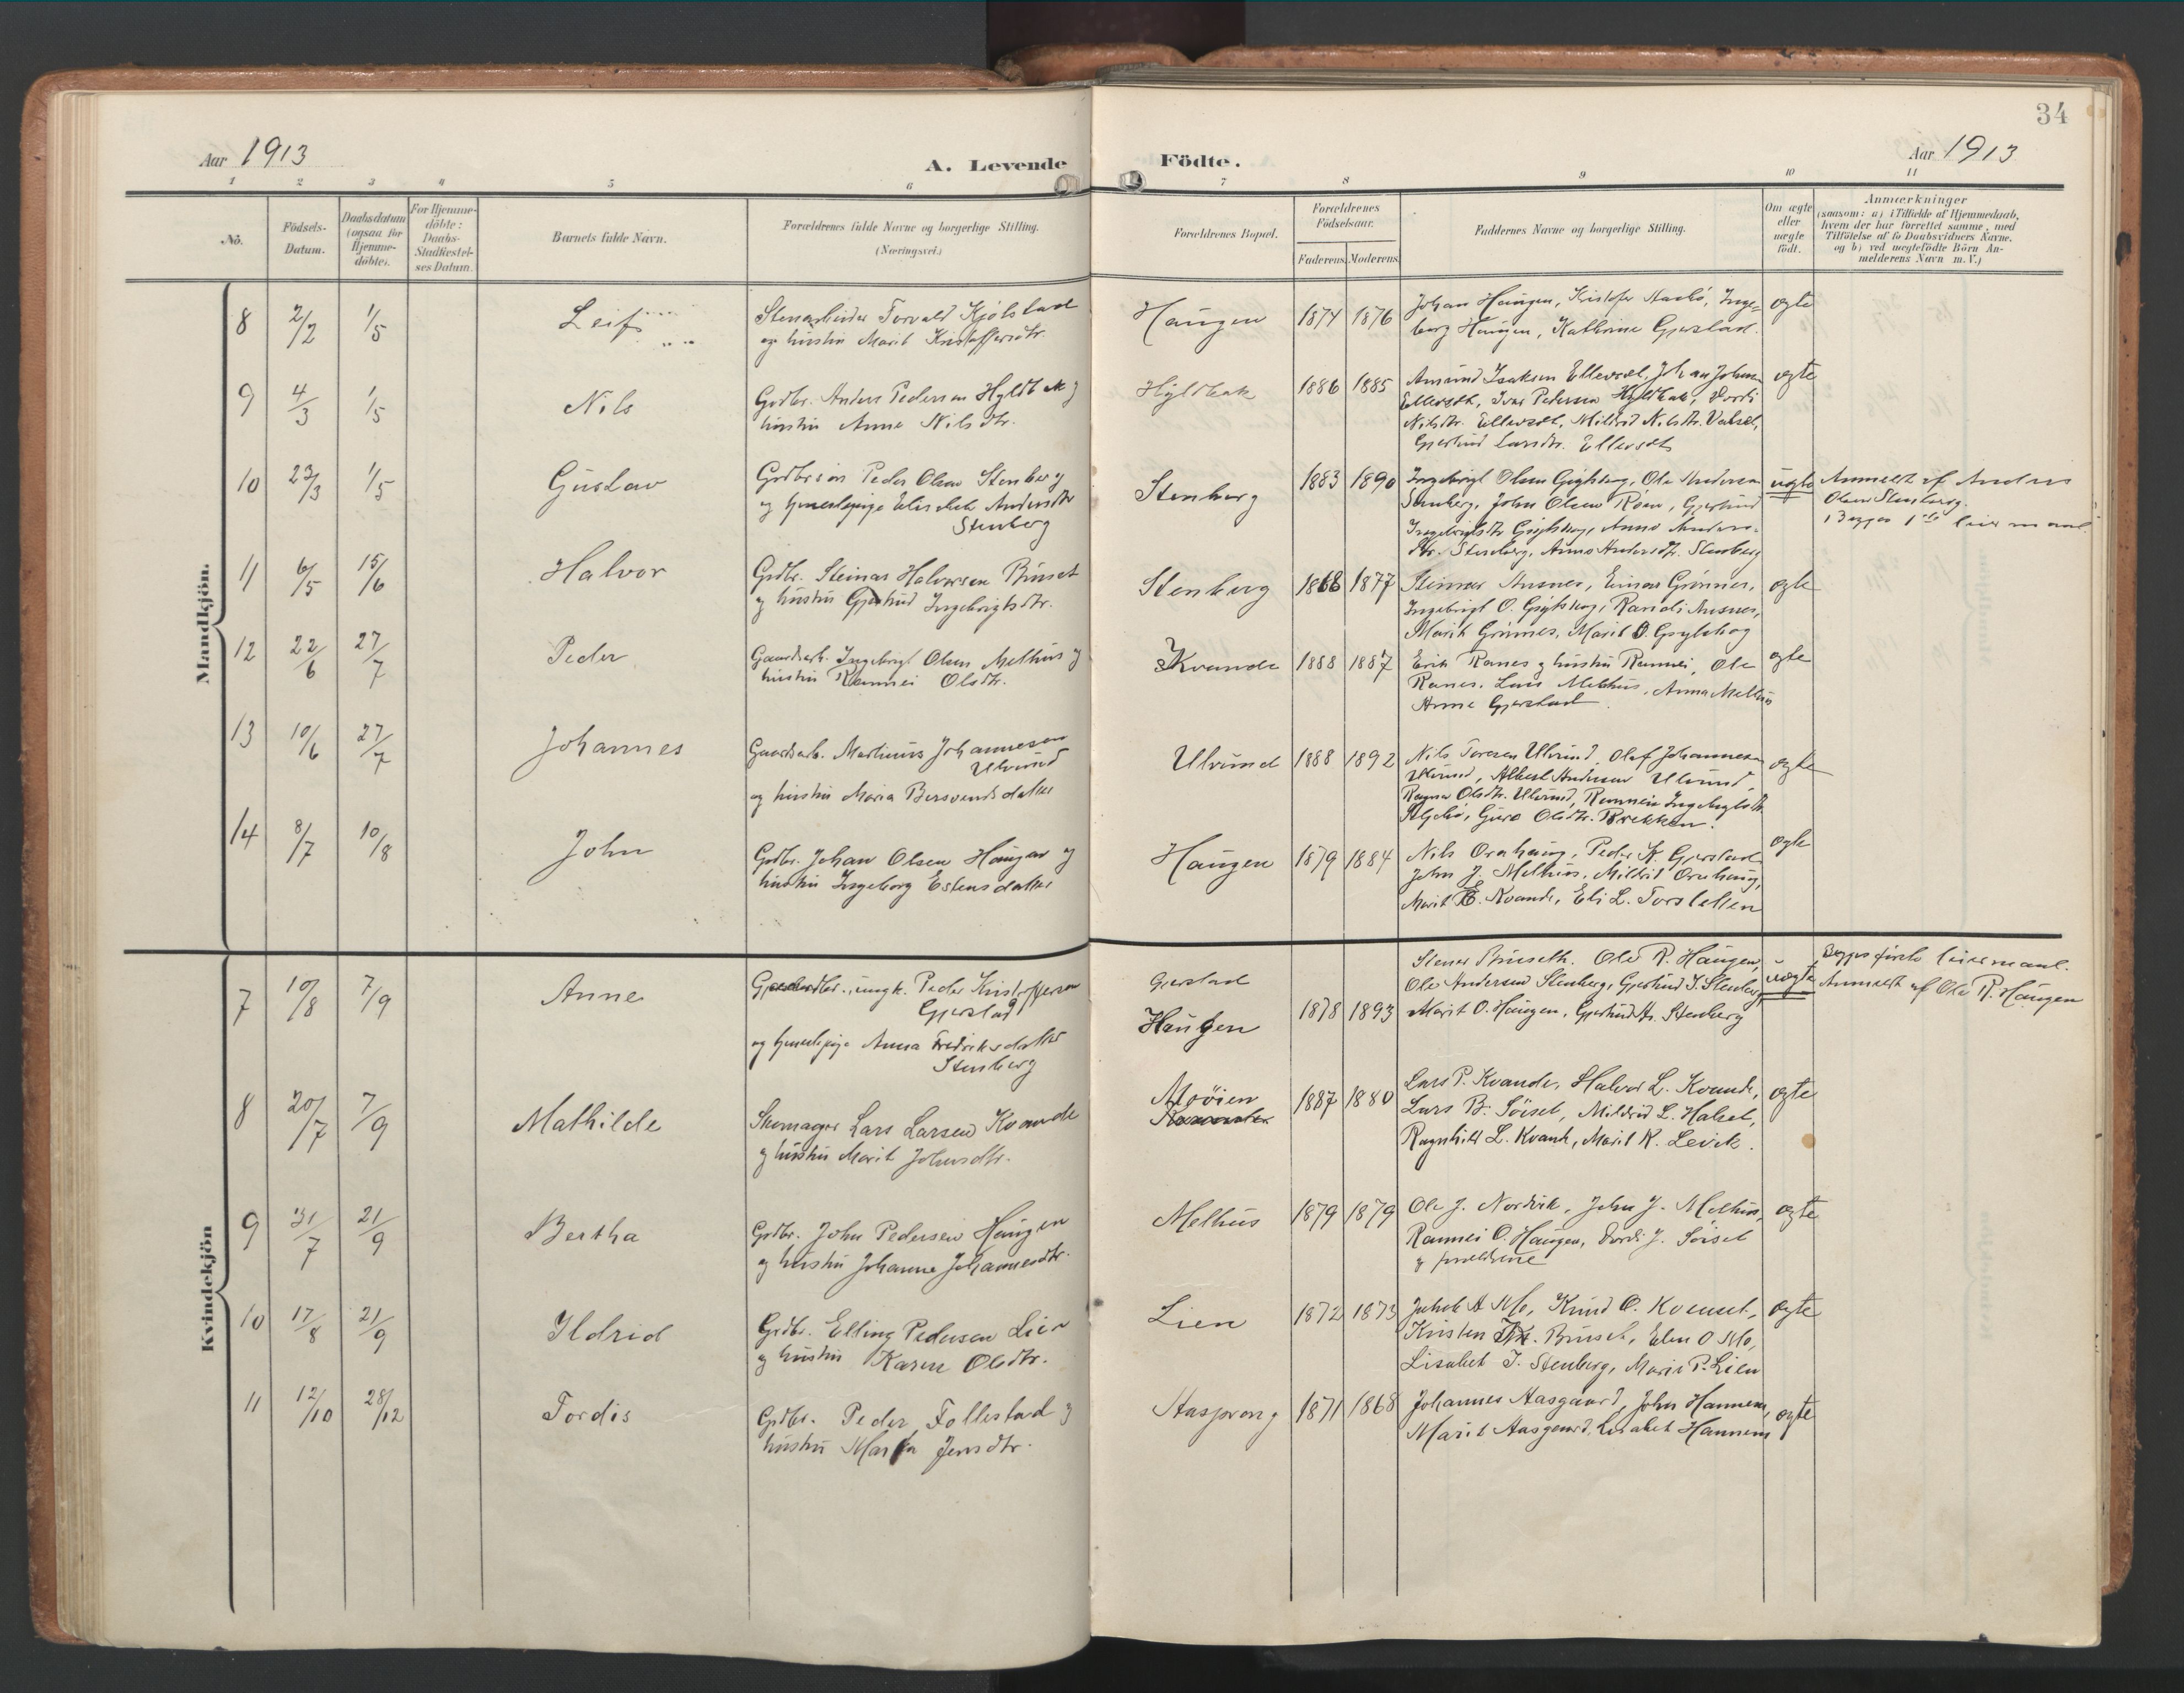 34
Aar 1913
A. Levende Födte.
Aar 1913
1 2 3 4 5 6 7 8 9 10 11
No.
Födsels-
Datum.
Daabsdatum
(ogsaa for
Hjemme-
döbte).
For Hjemme-
döbte:
Daabs-
Stadfæstel-
ses Datum.
Barnets fulde Navn.
Forældrenes fulde Navne og borgerlige Stilling.
(Næringsvei.)
Forældrenes Bopæl.
Forældrenes
Födselsaar.
Faderens Moderens
Faddernes Navne og borgerlige Stilling.
Om ægte
eller
uægte
födt.
Anmærkninger
(saasom: a) i Tilfælde af Hjemmedaab,
hvem der har forrettet samme, med
Tilföielse af to Daabsvidners Navne,
og b) ved uægtefödte Börn An-
melderens Navn m. V.)
Mandkjön.
8 2/2 1/5 Leif
Stenarbeider Torvald Kjölstad
og hustru Marit Kristoffersdtr.
Haugen 1874 1876
Johan Haugen, Kristofer Aasbö, Inge-
borg Haugen, Kathrine Gjerstad.
ægte
9 4/3 1/5 Nils
Grdbr. Anders Pedersen Hyldbak og
hustru Anne Nilsdtr.
Hyldbak 1886 1885
Amund Isaksen Ellevset, Johan Johns
Ellevset, Ivar Pedersen Hyldbak, Dordi
Nilsdtr. Ellevset, Mildrid Nilsdtr. Valset,
Gjertrud Larsdtr. Ellevset
ægte
10 23/3 1/5 Gustav
Grdbrsön Peder Olsen Stenberg
og Pige Elisabet Andersdtr
Stenberg
Stenberg 1883 1890
Ingebrigt Olsen Ole Andersen
Stenberg, John Olsen Röen, Gjertrud
Ingebrigtsdtr Anne Anders-
dtr. Stenberg, Anne Andersdtr. Stenberg
uægte
Anmeldt af Anders
Olsen Stenberg.
Begges 1ste leiermaal
11 6/5 15/6 Halvor
Grdbr. Steinar Halvorsen Brüset
og hustru Gjertrud Ingebrigtsdtr.
Stenberg 1868 1877
Steinar Ausnes, Einar Grönnes,
Ingebrigt O. Randi Ausnes,
Marit Grönnes, Marit O.
ægte
12 22/6 27/7 Peder
Gaardarb. Ingebrigt Olsen Melhus og
hustru Rannei Olsdtr.
Kvande 1888 1887
Erik Ranes og hustru Rannei, Ole
Ranes, Lars Melhus, Anna Melhus
Anne Gjerstad.
ægte
13 10/6 27/7 Johannes
Gaardarb. Martinus Johannesen
Ulvund
og hustru Maria Bersvendsdatter
Ulvund 1888 1892
Nils Toresen Ulvund, Olaf Johannesen
Ulvund, Albert Andersen Ulvund,
Ragna Olsdtr. Ulvund, Rannei Ingebrigtsdtr.
Guro Olsdtr. Brekken.
ægte
14 8/7 10/8 John
Grdbr. Johan Olsen Haugen og
hustru Ingeborg Estensdatter
Haugen 1879 1884
Nils Orahaug, Peder K. Gjerstad
John J. Melhus, Mildrid Orahaug,
Marit E. Kvande, Eli L. Torsletten
ægte
Kvindekjön
7 10/8 7/9 Anne
ungk. Peder Kristoffersen
Gjerstad
og Pige Anna Fredriksdatter
Stenberg
Gjerstad
Haugen 1878 1893
Stener Brüseth. Ole R. Haugen,
Ole Andersen Stenberg, Gjertrud I. Stenberg,
Marit O. Haugen, Gjertrud A. Stenberg
uægte
Begges förste leiermaal.
Anmeldt af Ole R. Haugen
8 20/7 7/9 Mathilde
Skomager Lars Larsen Kvande
og hustru Marit Johnsdtr.
Moöien 1887 1880
Lars P. Kvande, Halvor L. Kvande,
Lars B. Söiset, Mildrid L. Halset,
Ragnhild L. Kvande, Marit K. Levik.
ægte
9 31/7 21/9 Bertha
Grdbr. John Pedersen Haugen
og hustru Johanne Johannesdtr.
Melhus 1879 1879
Ole J. Nordvik, John J. Melhus,
Rannei O. Haugen, Dordi J. Söiset
og forældrene
ægte
10 17/8 21/9 Ildrid
Grdbr. Elling Pedersen Lien
og hustru Karen Olsdtr.
Lien 1872 1873
Jakob A Mo, Knud O. Kvenset,
Kristen Brüset, Elen O Mo,
Lisabet I. Stenberg, Marit P. Lien
ægte
11 12/10 28/12 Tordis
Grdbr. Peder Follestad og
hustru Marta Jensdtr.
Aasprong 1871 1868
Johannes Aasgaard, John Hannem,
Marit Aasgaard, Lisabet Hannem
ægte